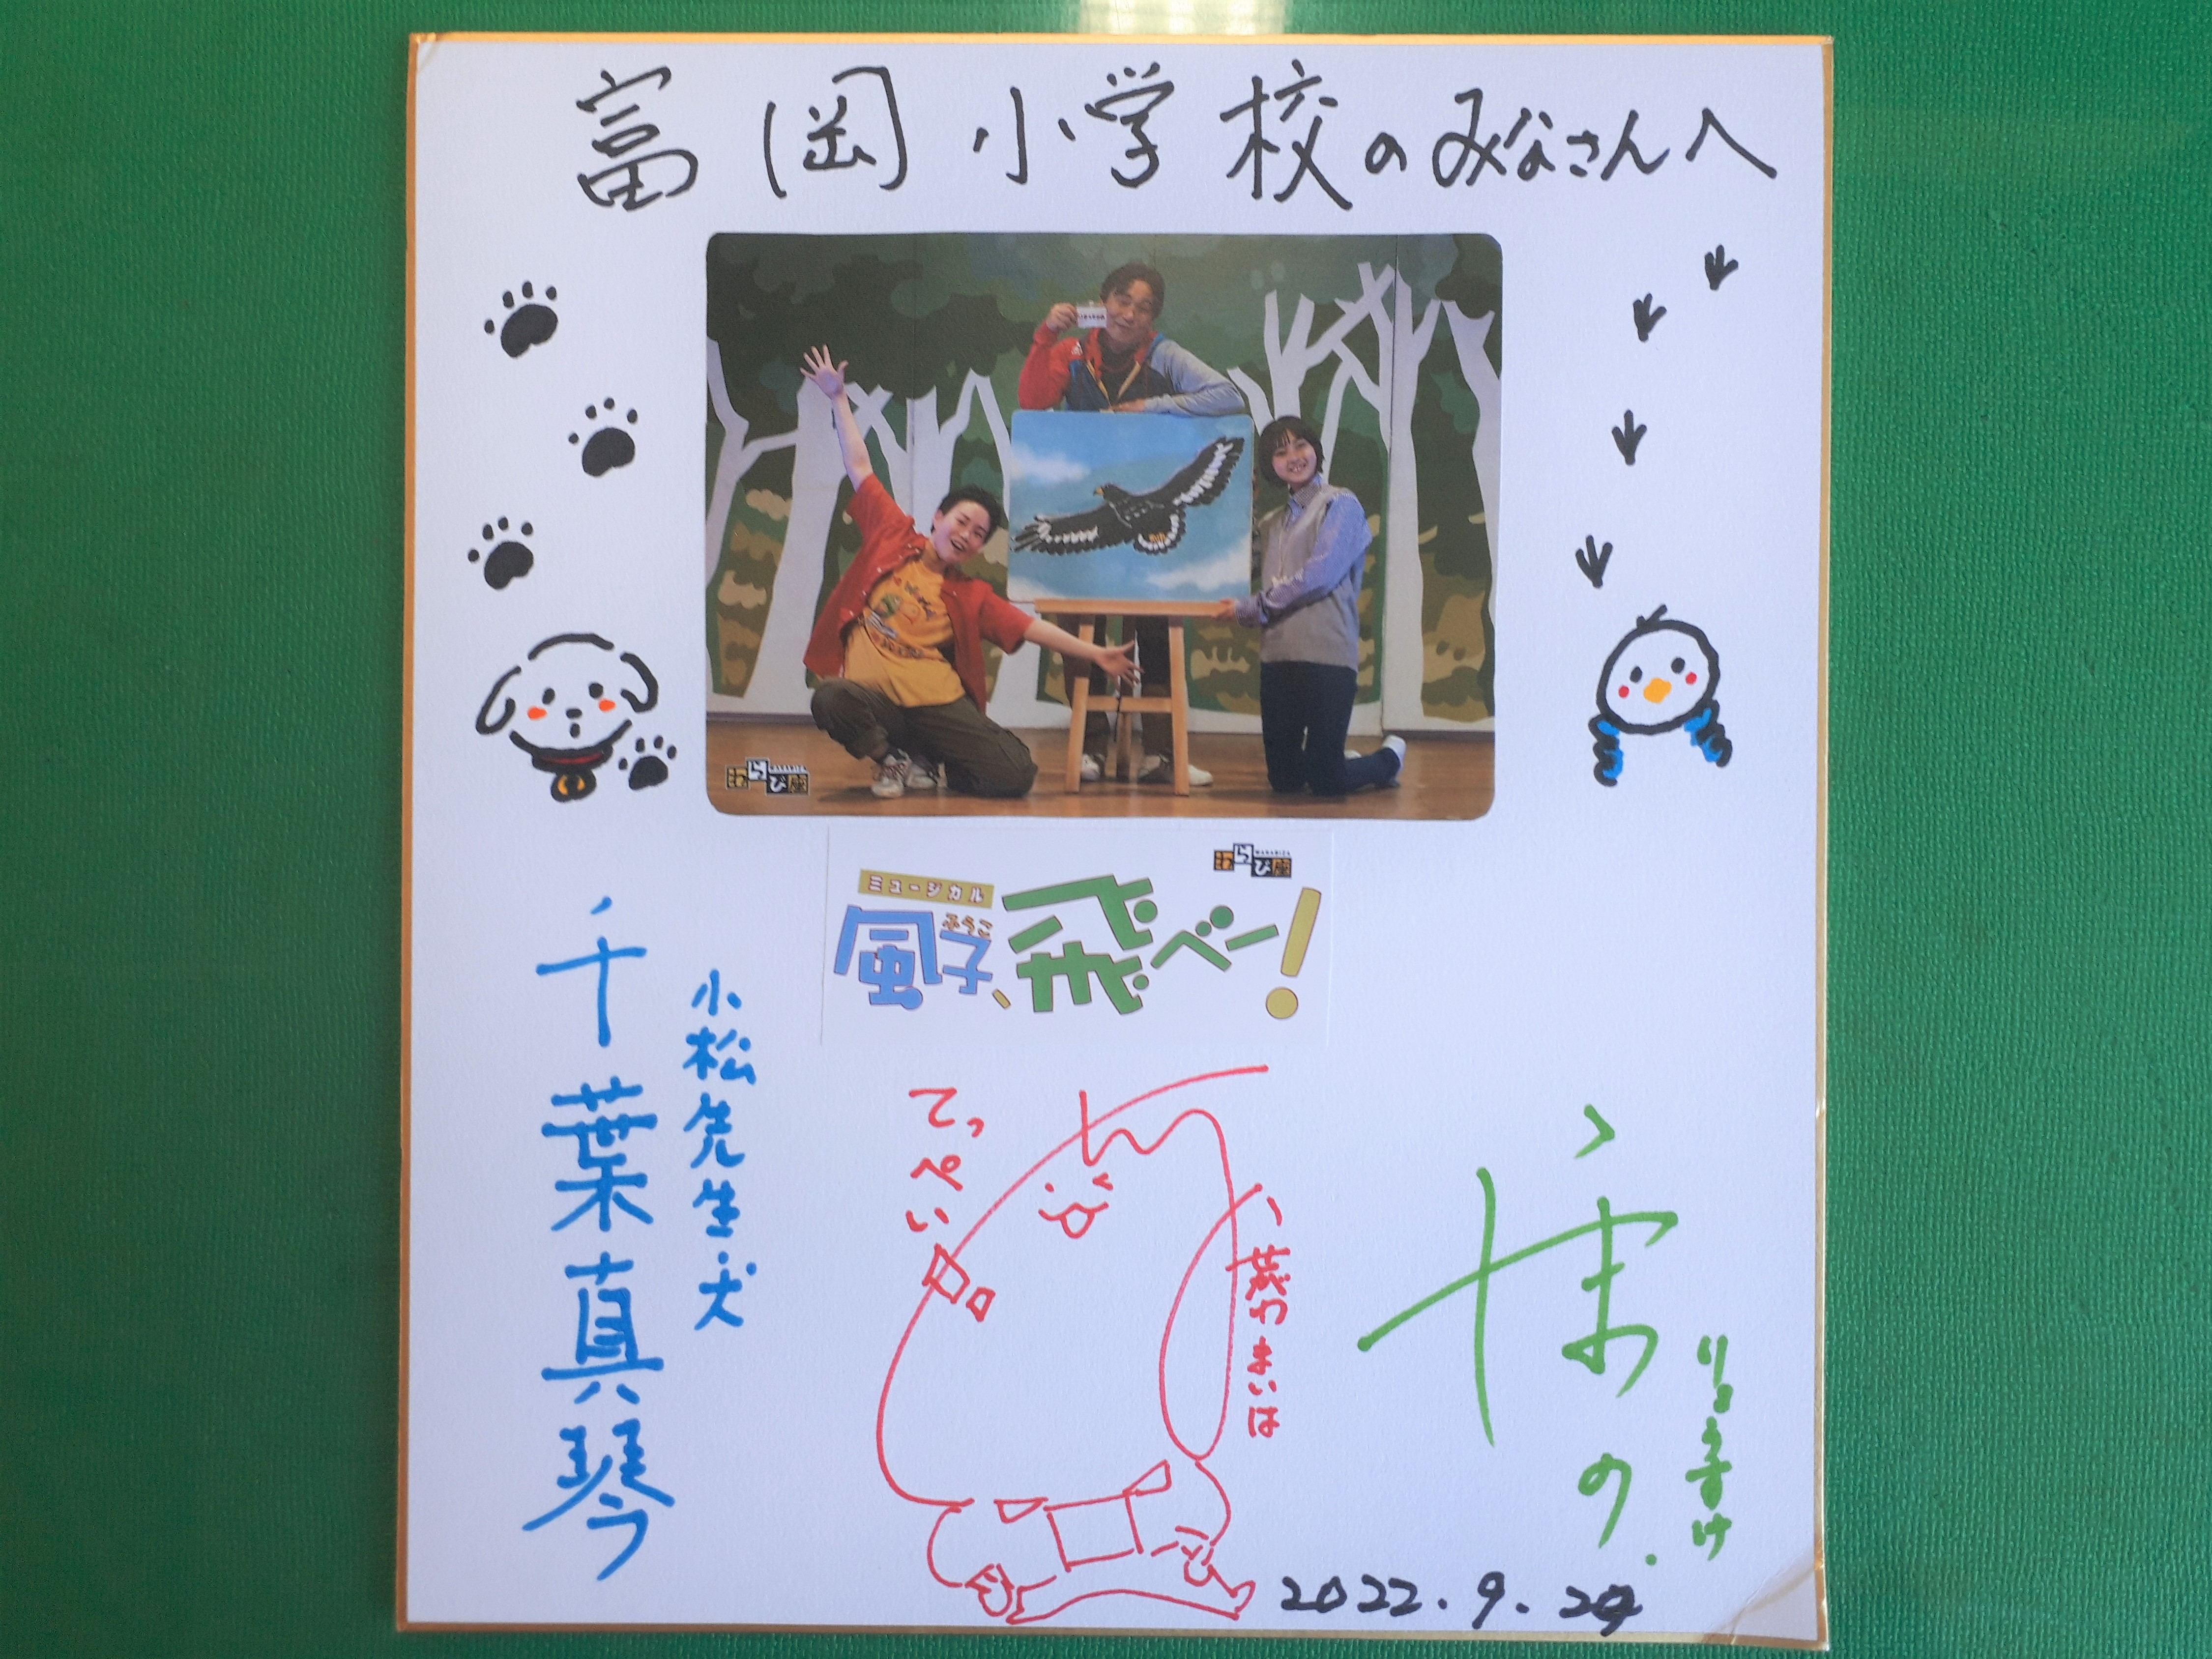 富岡小学校のみなさんへ
わらび座
わらび座
ミュージカル
風子、飛べー!
ふうこ
小松先生・犬
千葉真琴
てっぺい
りょうすけ
2022.9.